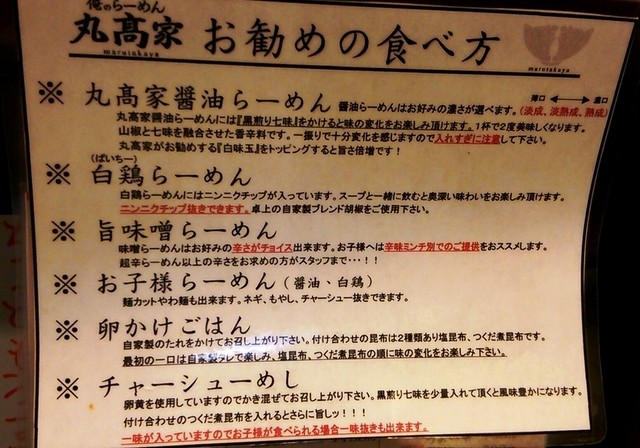 俺のらーめん
丸高家 お勧めの食べ方
marutakaya
marutakaya
※ 丸高家醤油らーめん 醤油らーめんはお好みの濃さが選べます。(淡成、淡熟成、熟成)
薄口 濃口
丸高家醤油らーめんには『黒煎り七味』をかけると味の変化をお楽しみ頂けます。1杯で2度美味しくなります。
山椒と七味を融合させた香辛料です。一振りで十分変化を感じますので入れすぎに注意して下さい。
丸高家がお勧めする『白味玉』をトッピングすると旨さ倍増です!
(ぱいちー)
※ 白鶏らーめん
白鶏らーめんにはニンニクチップが入っています。スープと一緒に飲むと奥深い味わいをお楽しみ頂けます。
ニンニクチップ抜きできます。卓上の自家製ブレンド胡椒をご使用下さい。
※ 旨味噌らーめん
味噌らーめんはお好みの辛さがチョイス出来ます。お子様へは辛味ミンチ別でのご提供をおススメします。
超辛らーめん以上の辛さをお求めの方がスタッフまで・・・!!
※ お子様らーめん(醤油、白鶏)
麺カットやわ麺も出来ます。ネギ、もやし、チャーシュー抜きできます。
※ 卵かけごはん
自家製のたれをかけてお召し上がり下さい。付け合わせの昆布は2種類あり塩昆布、つくだ煮昆布です。
最初の一口は自家製タレで楽しみ、塩昆布、つくだ煮昆布の順に味の変化をお楽しみ下さい。
※ チャーシューめし
卵黄を使用していますのでかき混ぜてお召し上がり下さい。黒煎り七味を少量入れて頂くと風味豊かになります。
付け合わせのつくだ煮昆布を入れるとさらに旨しッ!!!
一味が入っていますのでお子様が食べられる場合一味抜きも出来ます。